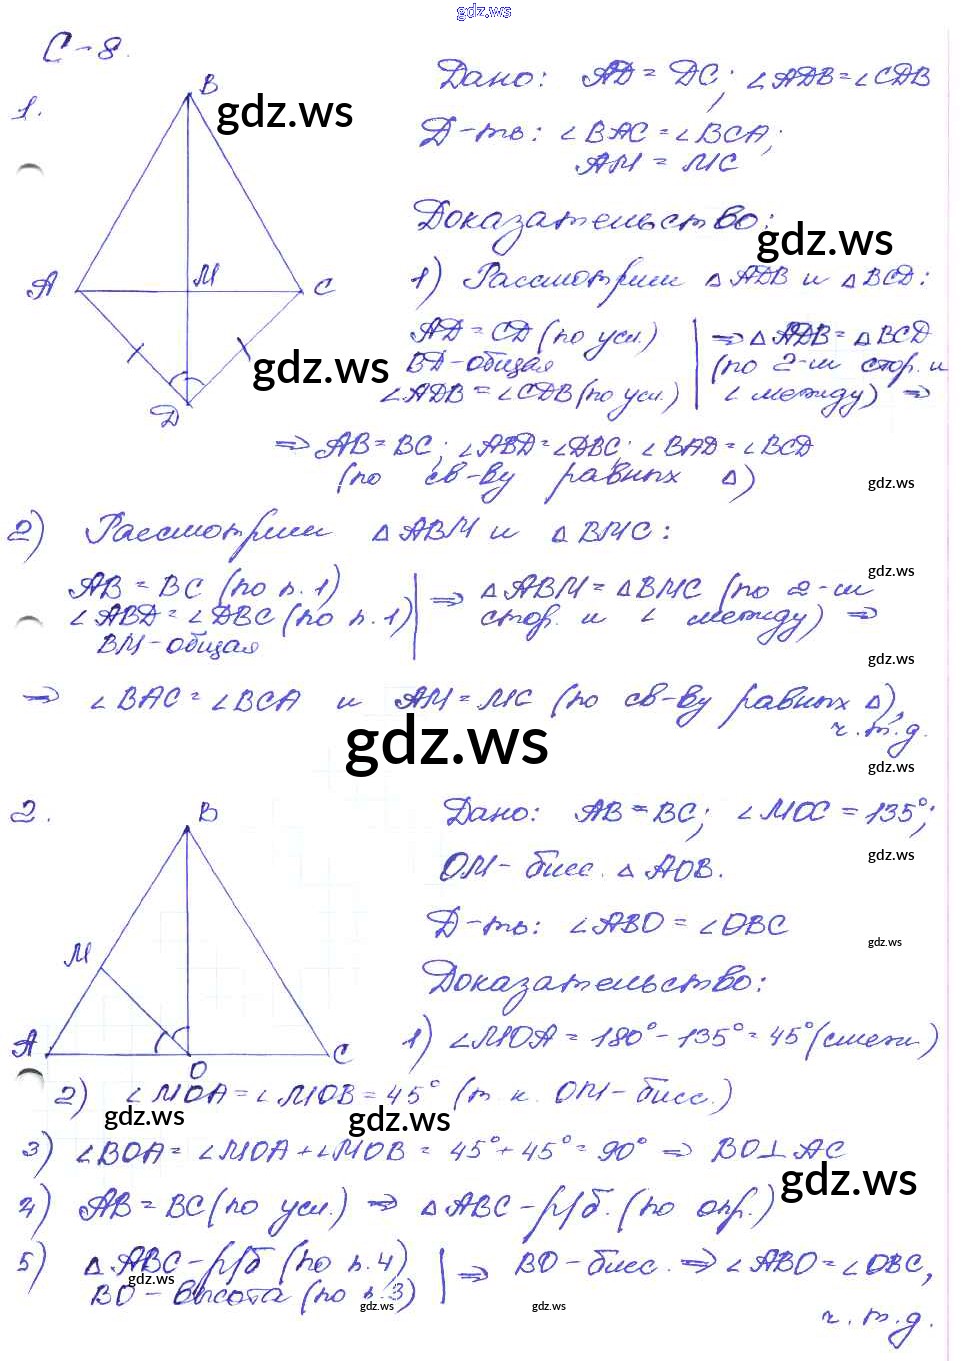 gdz.ws
С-8.
1.
B
A
M
C
D
gdz.ws
gdz.ws
Дано: AD = DC; ∠ADB = ∠CDB
Д-ть: ∠BAC = ∠BCA;
AM = MC
Доказательство:
gdz.ws
1) Рассмотрим △ADB и △BCD:
AD = CD (по усл.)
BD - общая
∠ADB = ∠CDB (по усл.)
⇒ △ADB = △BCD
(по 2-м стор. и
∠ между) ⇒
⇒ AB = BC; ∠ABD = ∠DBC; ∠BAD = ∠BCD
(по св-ву равных △)
gdz.ws
2) Рассмотрим △ABM и △BMC:
gdz.ws
AB = BC (по п.1)
∠ABD = ∠DBC (по п.1)
BM - общая
⇒ △ABM = △BMC (по 2-м
стор. и ∠ между) ⇒
gdz.ws
⇒ ∠BAC = ∠BCA и AM = MC (по св-ву равных △),
ч.т.д.
gdz.ws
gdz.ws
2.
B
M
A
O
C
Дано: AB = BC; ∠MOC = 135°;
OM - бисс. △AOB.
gdz.ws
Д-ть: ∠ABO = ∠OBC
gdz.ws
Доказательство:
1) ∠MOA = 180° - 135° = 45° (смежн)
2) ∠MOA = ∠MOB = 45° (т.к. OM - бисс.)
gdz.ws
gdz.ws
3) ∠BOA = ∠MOA + ∠MOB = 45° + 45° = 90° ⇒ BO⊥AC
gdz.ws
4) AB = BC (по усл.) ⇒ △ABC - р/б. (по опр.)
5) △ABC - р/б (по п.4)
BO - высота (по п.3)
⇒ BO - бисс. ⇒ ∠ABO = ∠OBC,
gdz.ws
gdz.ws
gdz.ws
ч.т.д.